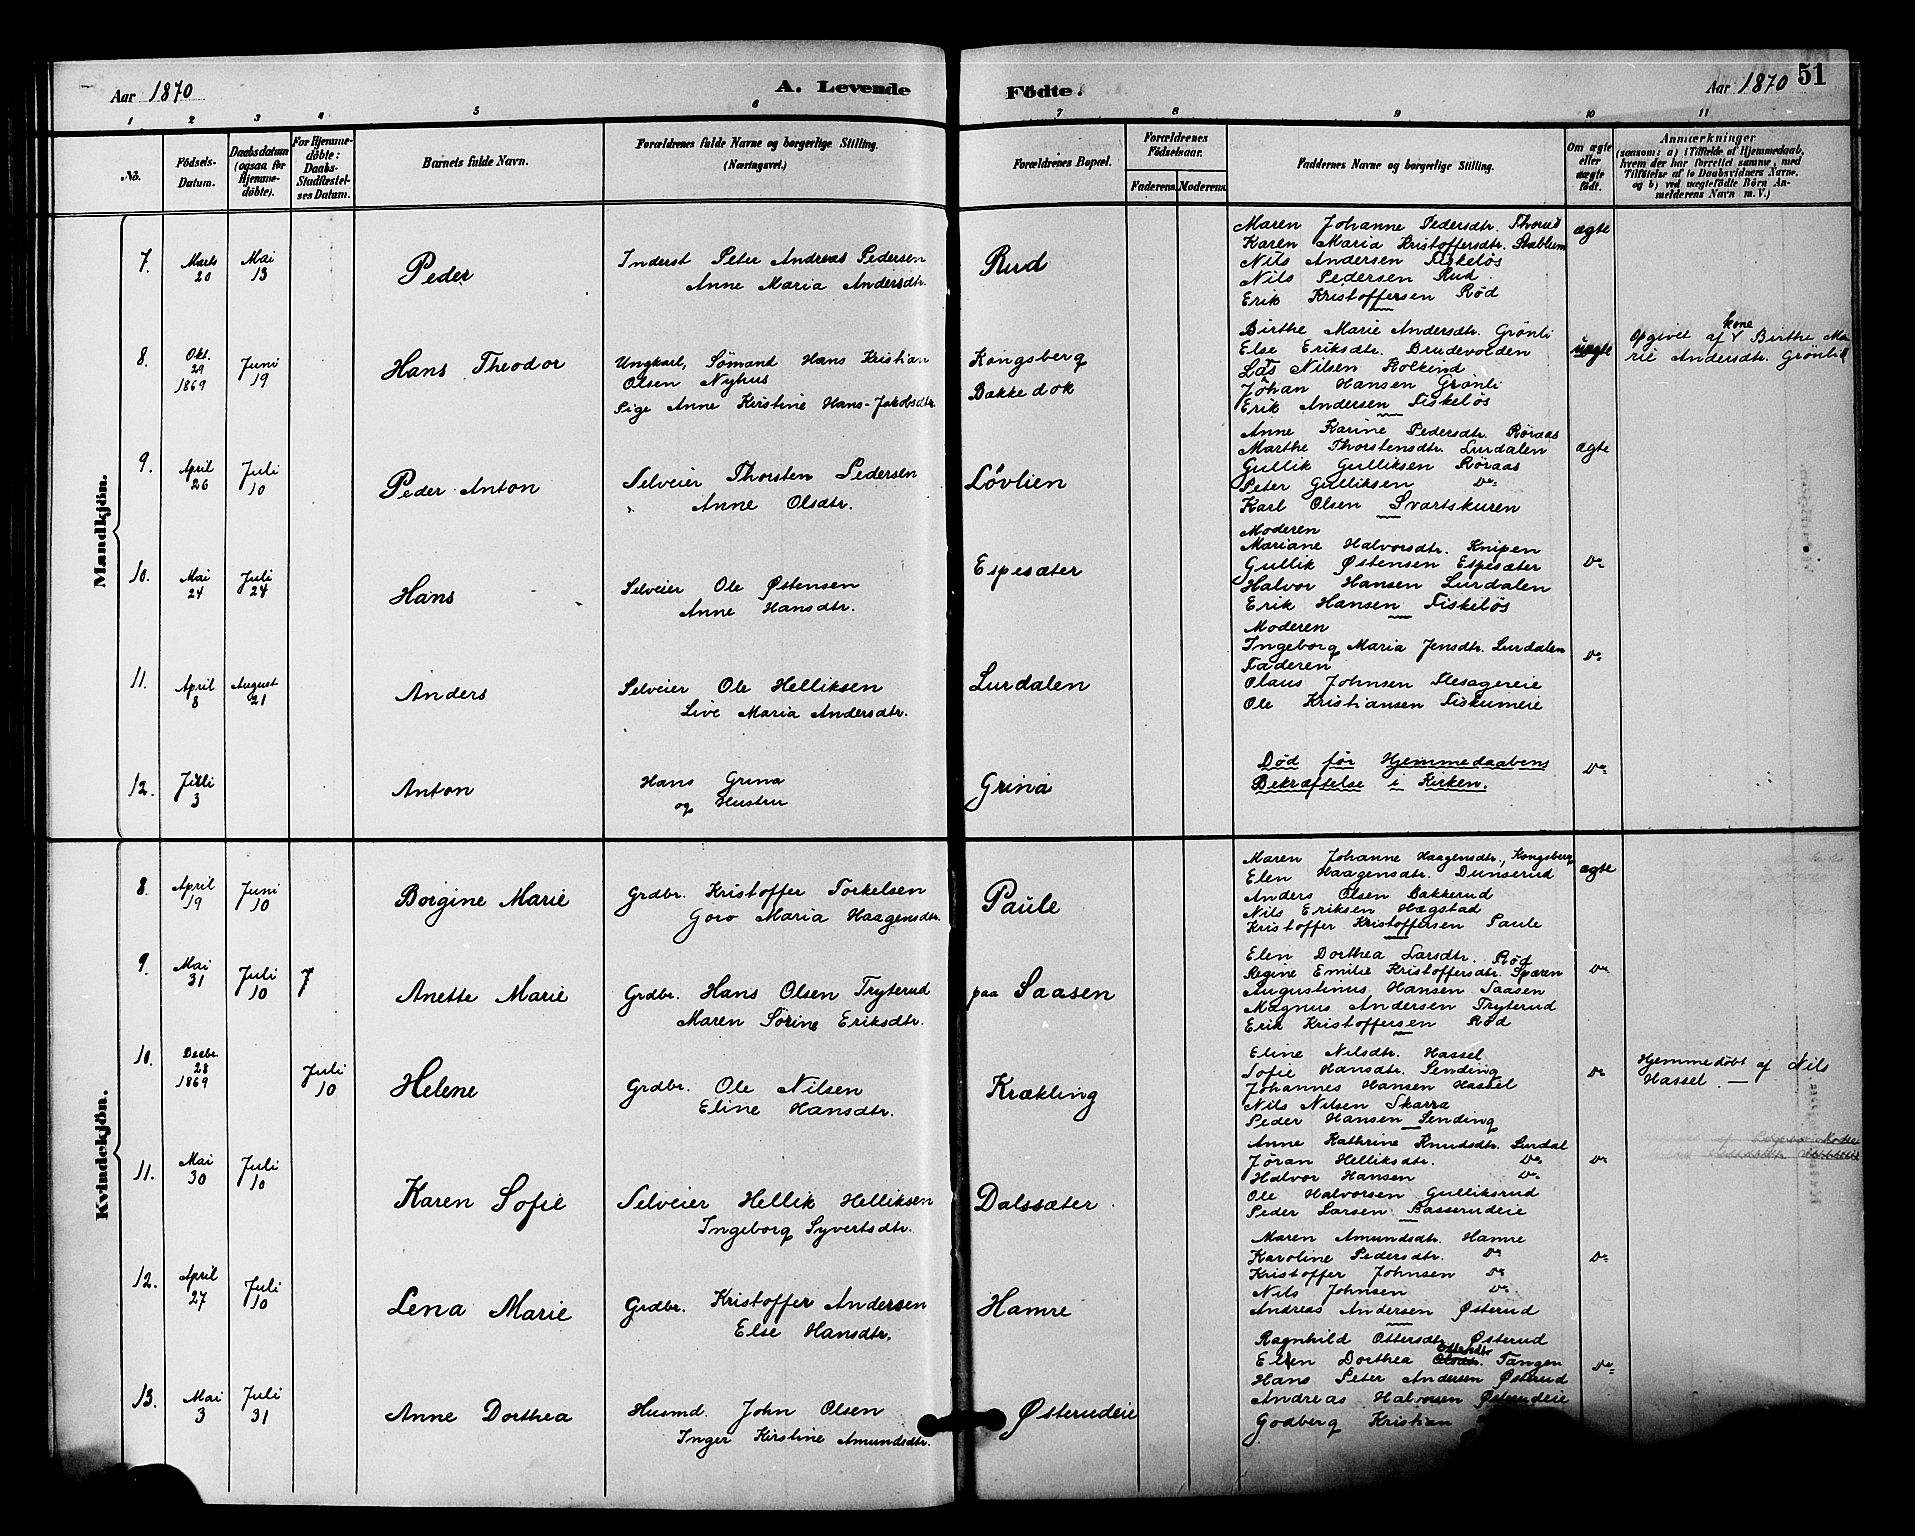 Aar 1870
A. Levende
Födte.
Aar 1870 51
1 2 3 4 5 6 7 8 9 10 11
No.
Födsels-
Datum.
Daabsdatum
(ogsaa for
Hjemme-
döbte).
For Hjemme-
döbte:
Daabs-
Stadfæstel-
ses Datum.
Barnets fulde Navn.
Forældrenes fulde Navne og borgerlige Stilling.
(Næringsvei.)
Forældrenes Bopæl.
Forældrenes
Födselsaar.
Faderens. Moderens.
Faddernes Navne og borgerlige Stilling.
Om ægte
eller
uægte
födt.
Anmærkninger
(saasom: a) i Tilfælde af Hjemmedaab,
hvem der har forrettet samme, med
Tilföielse af to Daabsvidners Navne,
og b) ved uægtefödte Börn An-
melderens Navn m. V.)
Mandkjön.
7.
Marts
20
Mai
13
Peder
Inderst Peter Andreas Pedersen
Anne Maria Andersdtr.
Rud
Maren Johanne Pedersdtr. Thorud
Karen Maria Kristoffersdtr. Stablum
Nils Andersen Fiskelös
Nils Pedersen Rud
Erik Kristoffersen Röd
ægte
8.
Okt.
29
1869
Juni
19
Hans Theodor
Ungkarl, Sømand Hans Kristian
Olsen Nyhus
Pige Anne Kirstine Hans-Jakobsdtr.
Kongsberg
Bakkedok
Birthe Marie Andersdtr. Grönli
Else Eriksdtr. Brudevolden
Lars Nilsen Kolkind
Johan Hansen Grönli
Erik Andersen Fiskelös
uægte
Kone
Opgivet af V Birthe Ma
rie Andersdtr. Grönli
9.
April
26
Juli
10
Peder Anton
Selveier Thorsten Pedersen
Anne Olsdtr.
Lövlien
Anne Karine Pedersdtr. Röraas
Marthe Thorstensdtr. Lurdalen
Gullik Gulliksen Röraas
Peter Gulliksen Do
Karl Olsen Svartskuren
ægte
10.
Mai
24
Juli
24
Hans
Selveier Ole Østensen
Anne Hansdtr.
Espesæter
Moderen
Mariane Halvorsdtr. Knipen
Gullik Østensen Espesæter
Halvor Hansen Lurdalen
Erik Hansen Fiskelös
Do
11.
April
8
August
21
Anders
Selveier Ole Helliksen
Live Maria Andersdtr.
Lurdalen
Moderen
Ingeborg Maria Jensdtr. Lurdalen
Faderen
Olaus Johnsen Stesagereie
Ole Kristiansen Fiskumeie
Do
12.
Juli
3
Anton
Hans Grina
og Hustru
Grina
Död før Hjemmedaabens
Bekræftelse i Kirken.
Do
Kvindekjön.
8.
April
19
Juni
10
Borgine Marie
Grdbr. Kristoffer Torkelsen
Goro Maria Haagensdtr.
Paule
Maren Johanne Haagensdtr., Kongsberg
Elen Haagensdtr. Dunserud
Anders Olsen Bakkerud
Nils Eriksen Hægstad
Kristoffer Kristoffersen Paule
ægte
9.
Mai
31
Juli
10
7
Anette Marie
Grdbr. Hans Olsen Tryterud
Maren Sörine Eriksdtr.
paa Saasen
Elen Dorthea Larsdtr. Röd
Regine Emilie Kristoffersdtr. Spæren
Augustinus Hansen Saasen
Magnus Andersen Tryterud
Erik Kristoffersen Röd
Do
10.
Decbr.
28
1869
Juli
10
Helene
Grdbr. Ole Nilsen
Eline Hansdtr.
Krækling
Eline Nilsdtr. Hassel
Sofie Hansdtr. Sending
Johannes Hansen Hassel
Nils Nilsen Skarra
Peder Hansen Sending
Do
Hjemmedöbt af Nils
Hassel. —
11.
Mai
30
Juli
10
Karen Sofie
Selveier Hellik Helliksen
Ingeborg Syvertsdtr.
Dalssæter
Anne Kathrine Knudsdtr. Lurdal
Jöran Helliksdtr. Do
Halvor Hansen Do
Ole Halvorsen Gulliksrud
Peder Larsen Basserudeie
Do
12.
April
27
Juli
10
Lena Marie
Grdbr. Kristoffer Andersen
Else Hansdtr.
Hamre
Maren Amundsdtr. Hamre
Karoline Pedersdtr. Do
Kristoffer Johnsen Do
Nils Johnsen Do
Andreas Andersen Østerud
Do
13.
Mai
3
Juli
31
Anne Dorthea
Husmd. John Olsen
Inger Kirstine Amundsdtr.
Østerudeie
Ragnhild Ottersdtr. Østerud
Ellen Dorthea Olsdtr. Tangen
Hans Peter Andersen Østerud
Andreas Halvorsen Østerudeie
Godberg Kristian
Do